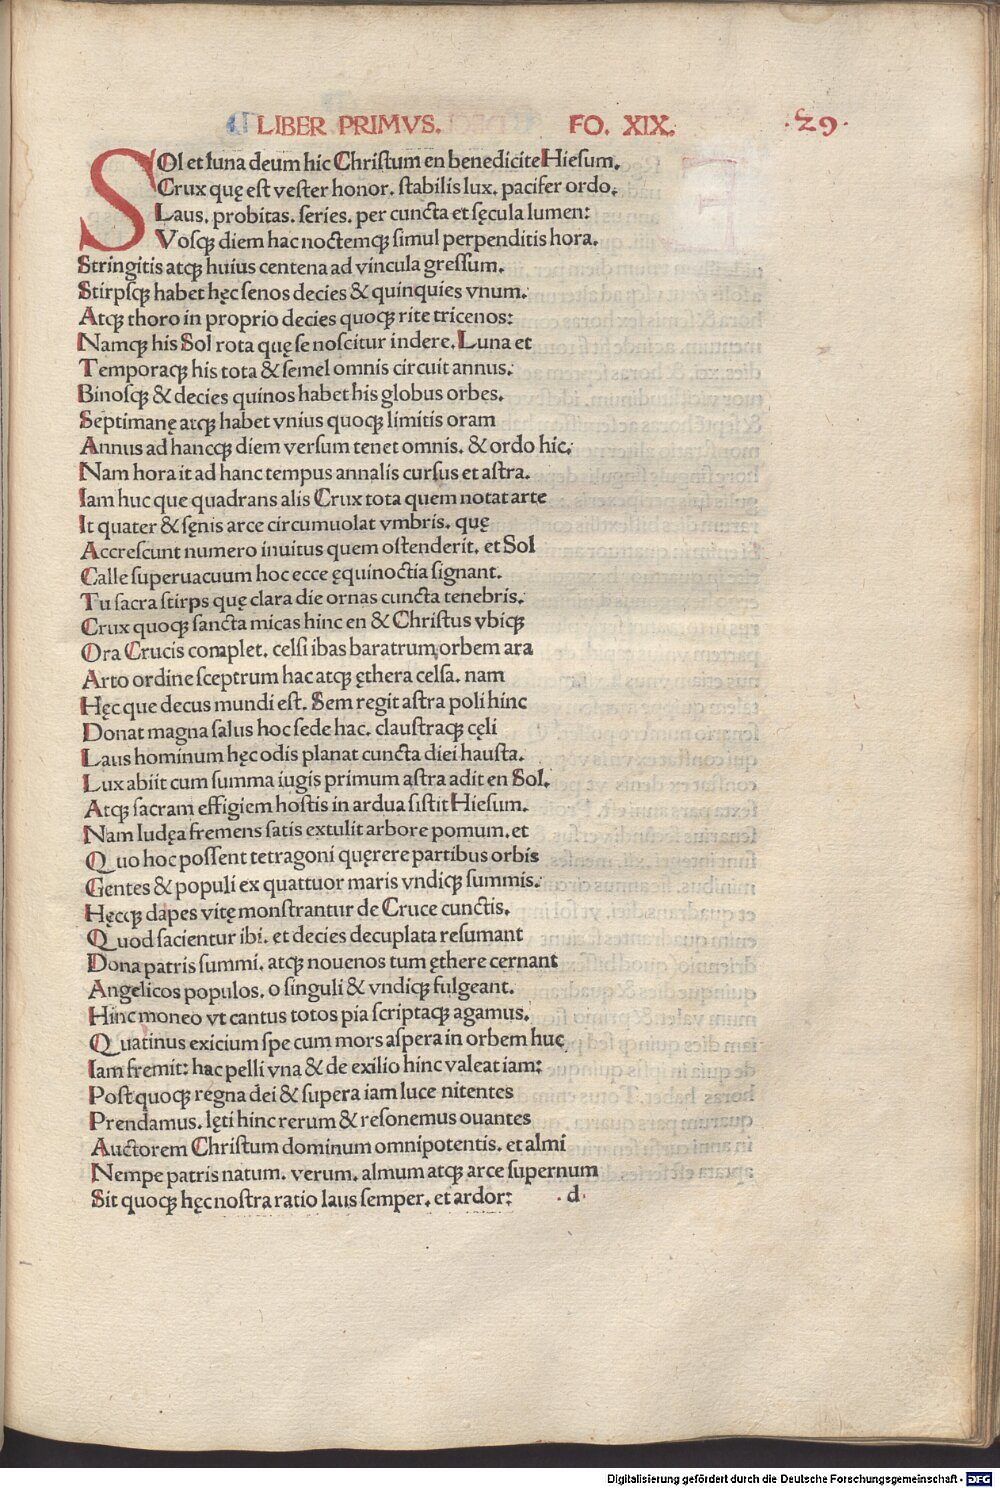 LIBER PRIMVS. FO. XIX. .29.
SOl et luna deum hic Christum en benedicite Hiesum.
Crux quę est vester honor. stabilis lux. pacifer ordo.
Laus. probitas. series. per cuncta et sęcula lumen:
Vosqꝫ diem hac noctemqꝫ simul perpenditis hora.
Stringitis atqꝫ huius centena ad vincula gressum.
Stirpsqꝫ habet hęc senos decies & quinquies vnum.
Atqꝫ thoro in proprio decies quoqꝫ rite tricenos:
Namqꝫ his Sol rota quę se noscitur indere. Luna et
Temporaqꝫ his tota & semel omnis circuit annus.
Binosqꝫ & decies quinos habet his globus orbes.
Septimanę atqꝫ habet vnius quoqꝫ limitis oram
Annus ad hancqꝫ diem versum tenet omnis. & ordo hic.
Nam hora it ad hanc tempus annalis cursus et astra.
Iam huc que quadrans alis Crux tota quem notat arte
It quater & sęnis arce circumuolat vmbris. quę
Accrescunt numero inuitus quem ostenderit. et Sol
Calle superuacuum hoc ecce ęquinoctia signant.
Tu sacra stirps quę clara die ornas cuncta tenebris.
Crux quoqꝫ sancta micas hinc en & Christus vbiqꝫ
Ora Crucis complet. celsi ibas baratrum orbem ara
Arto ordine sceptrum hac atqꝫ ęthera celsa. nam
Hęc que decus mundi est. Sem regit astra poli hinc
Donat magna salus hoc sede hac. claustraqꝫ cęli
Laus hominum hęc odis planat cuncta diei hausta.
Lux abiit cum summa iugis primum astra adit en Sol.
Atqꝫ sacram effigiem hostis in ardua sistit Hiesum.
Nam Iudęa fremens satis extulit arbore pomum. et
Quo hoc possent tetragoni quęrere partibus orbis
Gentes & populi ex quattuor maris vndiqꝫ summis.
Hęcqꝫ dapes vitę monstrantur de Cruce cunctis.
Quod sacientur ibi. et decies decuplata resumant
Dona patris summi. atqꝫ nouenos tum ęthere cernant
Angelicos populos. o singuli & vndiqꝫ fulgeant.
Hinc moneo vt cantus totos pia scriptaqꝫ agamus.
Quatinus exicium spe cum mors aspera in orbem huc
Iam fremit: hac pelli vna & de exilio hinc valeat iam:
Post quoqꝫ regna dei & supera iam luce nitentes
Prendamus. lęti hinc rerum & resonemus ouantes
Auctorem Christum dominum omnipotentis. et almi
Nempe patris natum. verum. almum atqꝫ arce supernum
Sit quoqꝫ hęc nostra ratio laus semper. et ardor: .d.
Digitalisierung gefördert durch die Deutsche Forschungsgemeinschaft - DFG